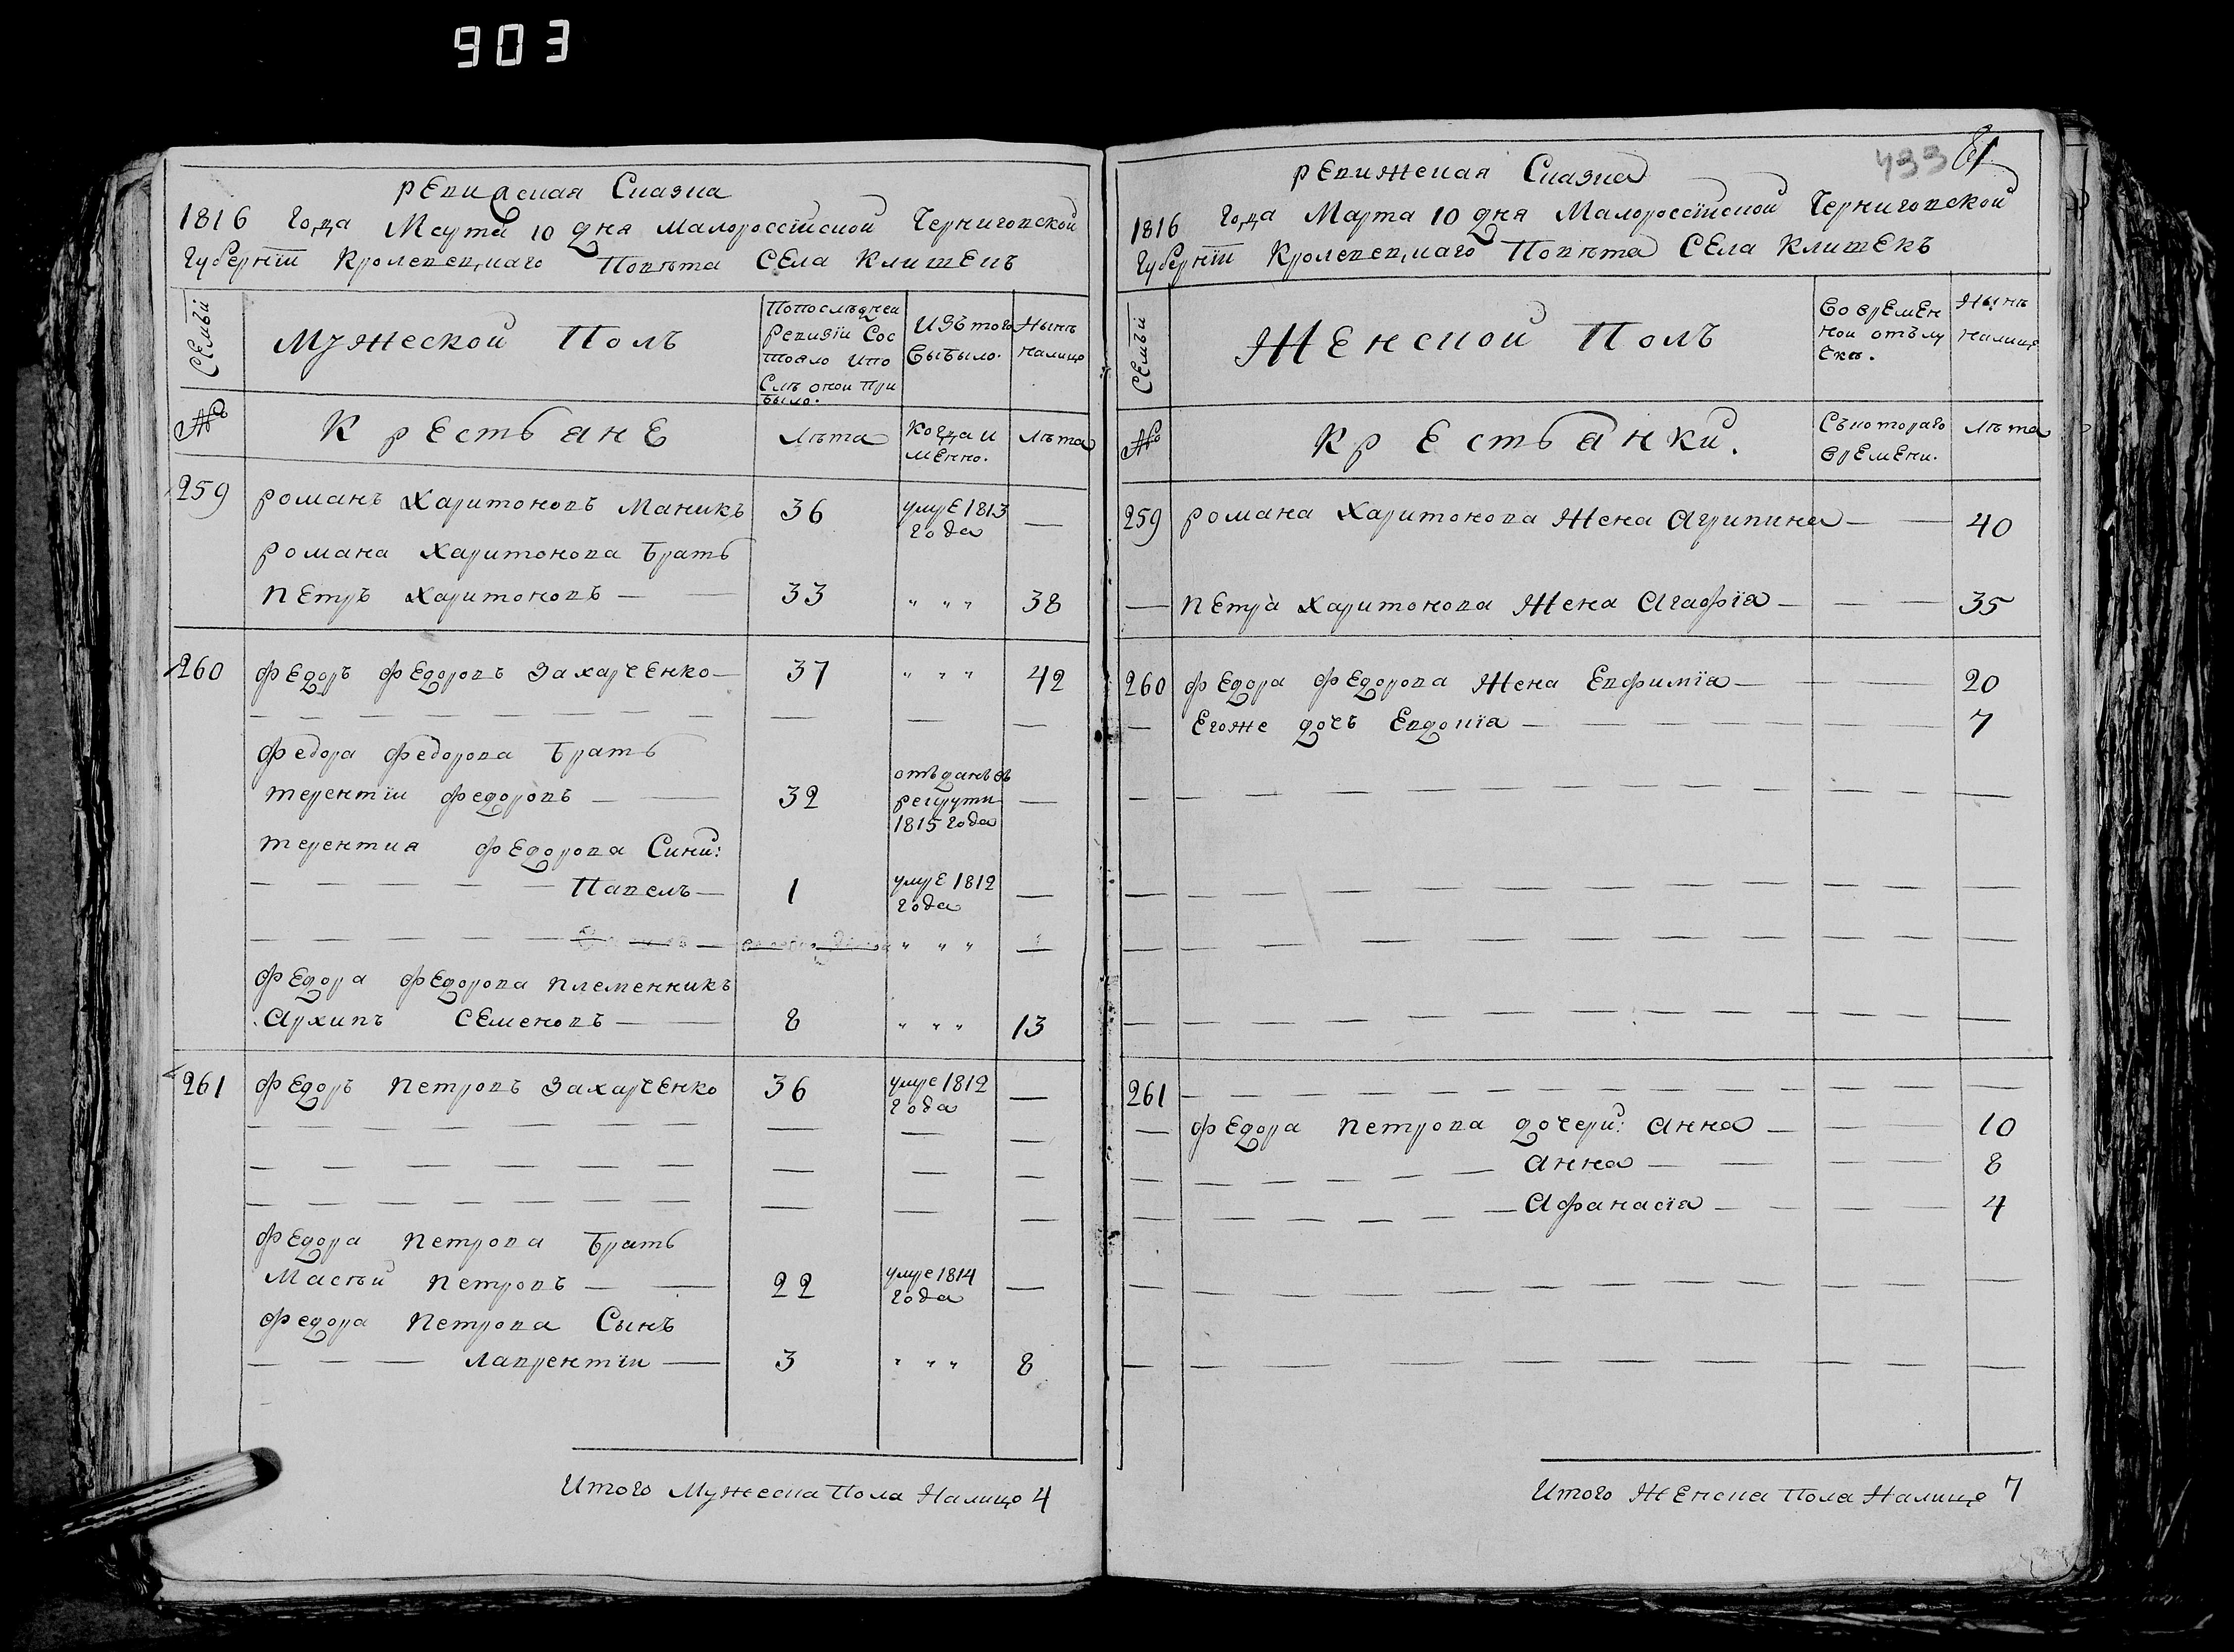 903
Ревизская Сказка
1816 Года Марта 10 дня Малороссїйской Черниговской
Губернїи Кролевецкаго Повѣта Села Клишекъ
Семьи
Мужеской Полъ
По послѣдней
Ревизїи Сос
тояло и по
Слѣ оной При
было.
Изъ того
Выбыло.
Нынѣ
налицо
№
Крестьяне
Лѣта
Когда и
менно.
Лѣта
259 Романъ Харитоновъ Маникъ 36 умре 1813 Года —
Романа Харитонова Братъ
Петръ Харитоновъ — — 33 " " " 38
260 Федоръ Федоровъ Захарченко — 37 " " " 42
Федора Федорова Братъ
Терентїи Федоровъ — — 32 отъданъ въ рекрути 1815 Года —
Терентия Федорова Сини:
Павелъ — 1 умре 1812 Года —
" " "
Федора Федорова племенникъ
Архипъ Семеновъ — — 8 " " " 13
261 Федоръ Петровъ Захарченко 36 умре 1812 Года —
Федора Петрова Братъ
Масѣй Петровъ — — 22 умре 1814 Года —
Федора Петрова Сынъ
— — — Лаврентїи — 3 " " " 8
Итого Мужеска Пола Налицо 4
433 81
Ревижская Сказка
1816 Года Марта 10 дня Малороссїйской Черниговской
Губернїи Кролевецкаго Повѣта Села Клишекъ
Семьи
Женской Полъ
Во времен
ной отълу
чкѣ.
Нынѣ
налице
№
Крестьянки.
Съ котораго
времени.
Лѣта
259 Романа Харитонова Жена Агрипина — — 40
— Петра Харитонова Жена Агафїа — — — 35
260 Федора Федорова Жена Евфимїа — — — 20
— Егоже дочь Евдокїа — — — 7
261
— Федора Петрова дочери: Анна — — — 10
Анна — — — 8
Афанасїа — — — 4
Итого Женска Пола Налице 7